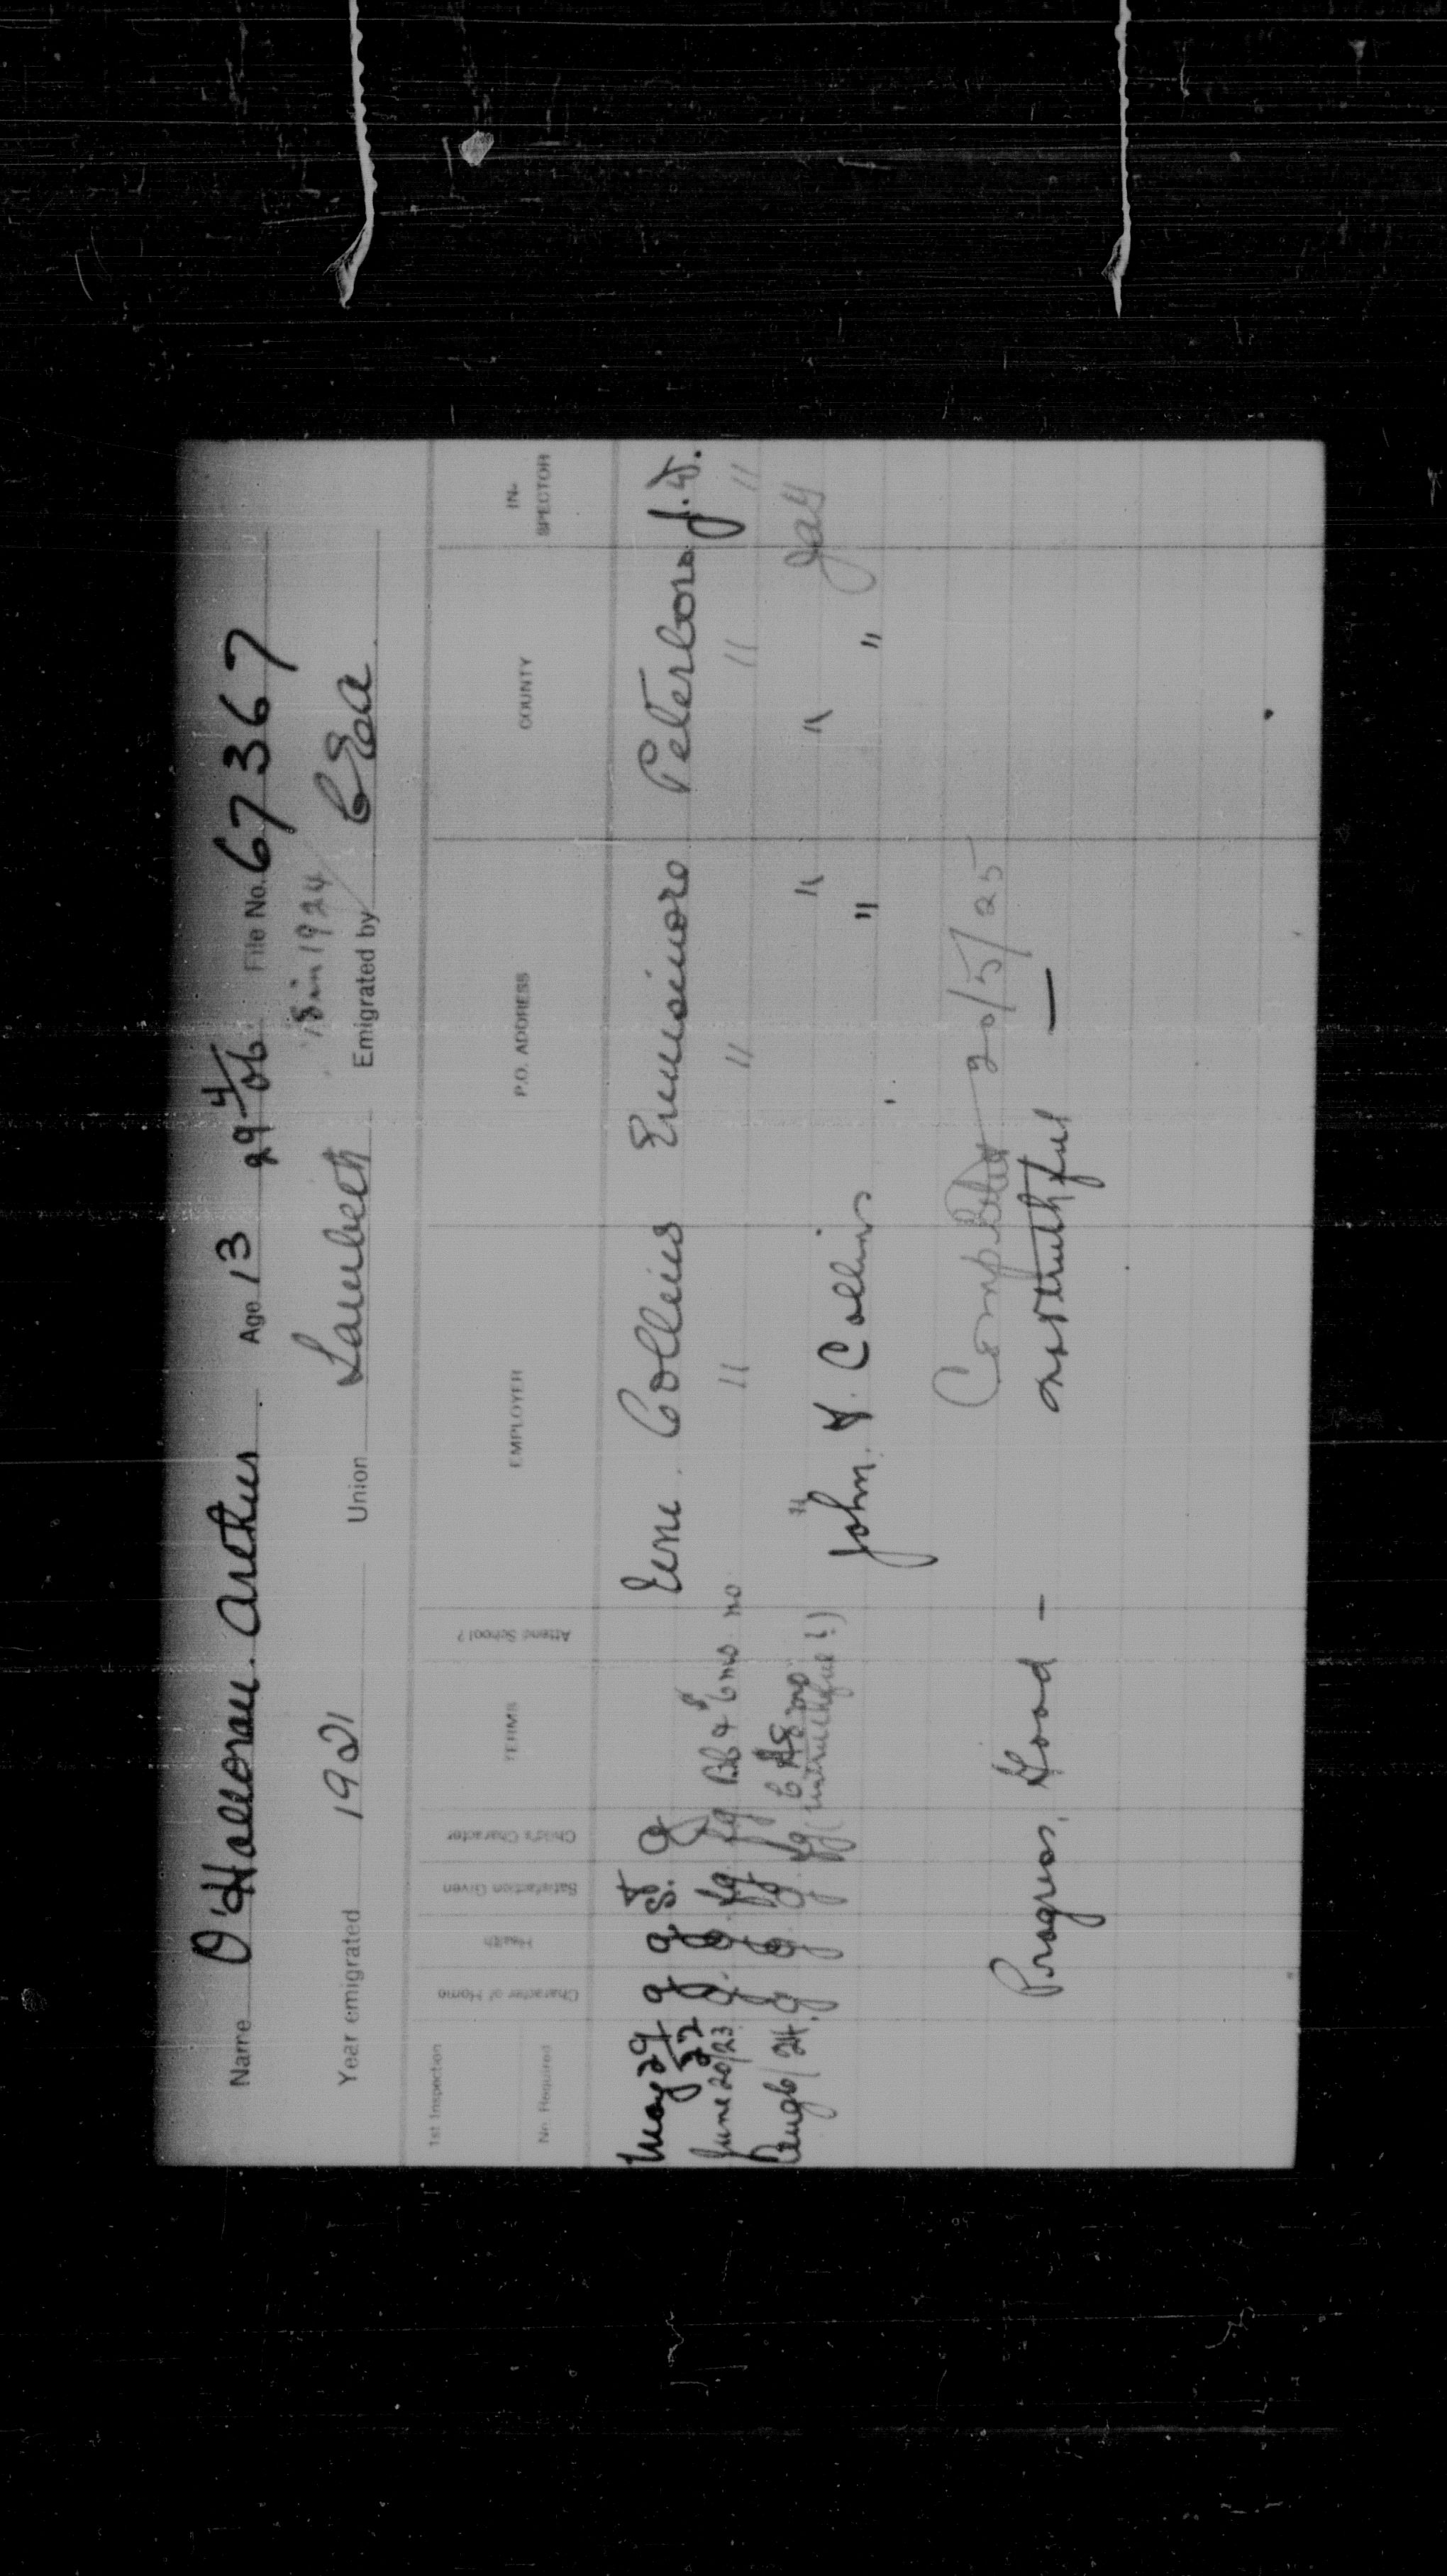 Name O'Halloran. Arthur Age 13 29 4/06 File No. 67367
18 in 1924
Year emigrated 1921 Union Lambeth Emigrated by CEA
1st Inspection
No Required
Character of Home
Health
Satisfaction Given
Child's Character
TERMS
Attend School?
EMPLOYER
P.O. ADDRESS
COUNTY
IN-SPECTOR
May 29/22 g g g Collins Ennismore Peterboro J.
June 20/23 g. g. fg. fg 6 mos no " " " "
Aug 6/24. g g fg fg " " "
(untruthful!)
John. F. Collins " "
Completed 20/5/25
Progress, Good - not truthful —